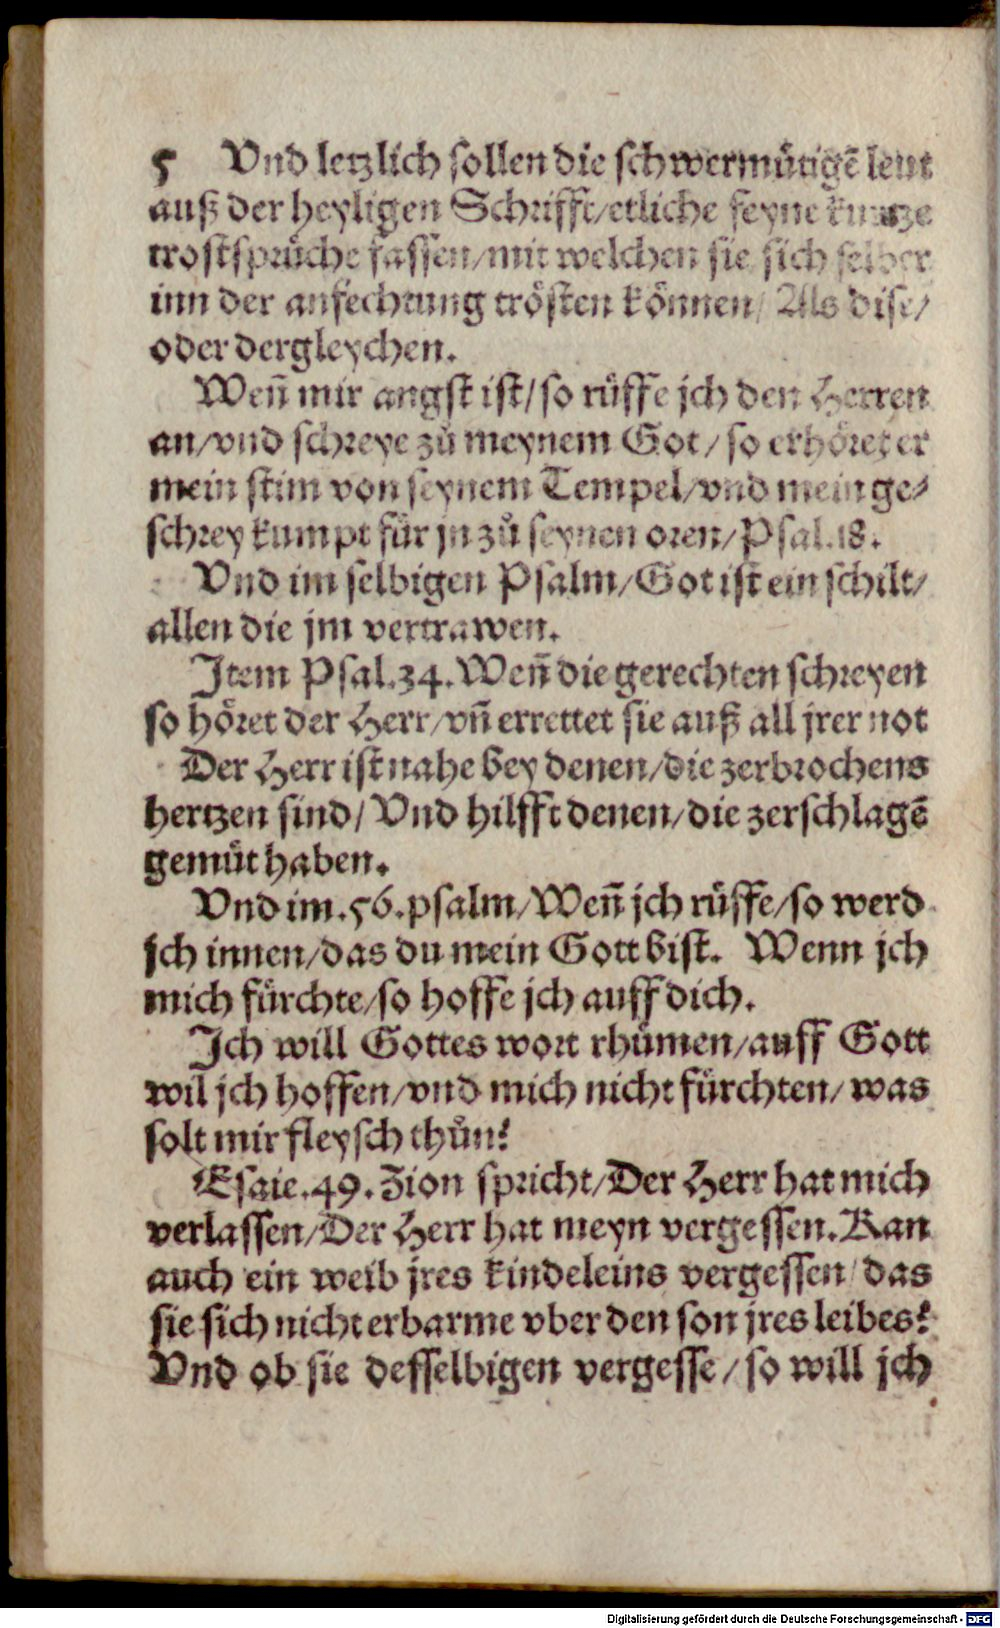 5 Vnd letzlich sollen die schwermütigẽ leut
auß der heyligen Schrifft/etliche feyne kurtze
trostsprüche fassen/mit welchen sie sich selber
inn der anfechtung trösten können/ Als dise/
oder dergleychen.
Weñ mir angst ist/so rüffe jch den Herren
an/vnd schreye zů meynem Got/ so erhöret er
mein stim von seynem Tempel/vnd mein ge⸗
schrey kumpt für jn zů seynen oren/Psal.18.
Vnd im selbigen Psalm/Got ist ein schilt/
allen die jm vertrawen.
Item Psal.34.Weñ die gerechten schreyen
so höret der Herr/vñ errettet sie auß all jrer not
Der Herr ist nahe bey denen/die zerbrochens
hertzen sind/ Vnd hilfft denen/die zerschlagẽ
gemüt haben.
Vnd im.56.psalm/Weñ jch rüffe/so werd
jch innen/das du mein Gott bist. Wenn jch
mich fürchte/so hoffe jch auff dich.
Ich will Gottes wort rhümen/auff Gott
wil jch hoffen/vnd mich nicht fürchten/ was
solt mir fleysch thůn?
Esaie.49.Zion spricht/Der Herr hat mich
verlassen/Der Herr hat meyn vergessen.Kan
auch ein weib jres kindeleins vergessen/das
sie sich nicht erbarme vber den son jres leibes?
Vnd ob sie desselbigen vergesse/so will jch
Digitalisierung gefördert durch die Deutsche Forschungsgemeinschaft - DFG